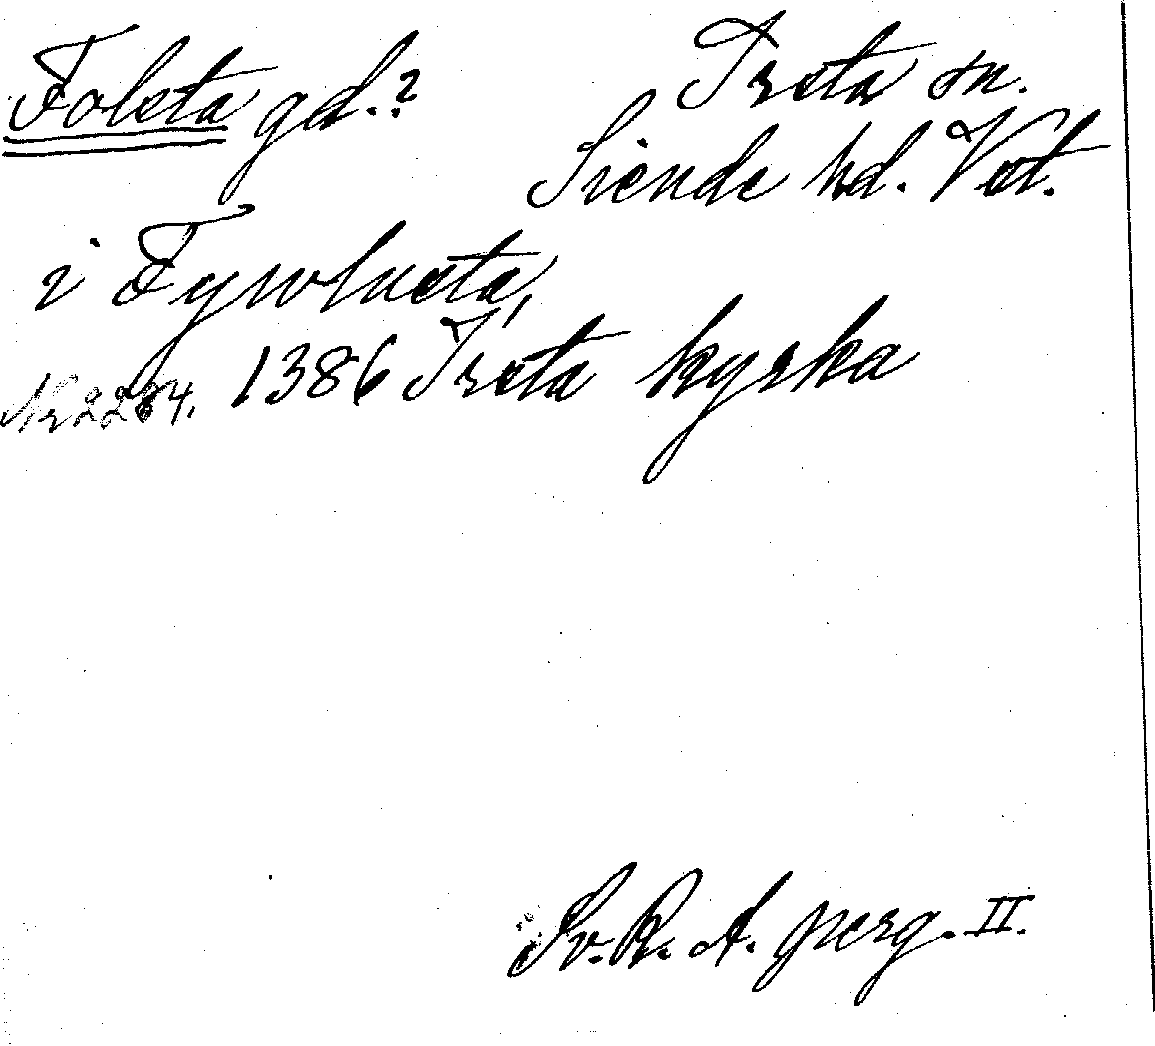 Folsta gd.? Irsta sn.
Siende hd. Vstm.
i Fywlusta,
Nr 2284. 1386 Irsta kyrka
Sv. R. A. perg. II.